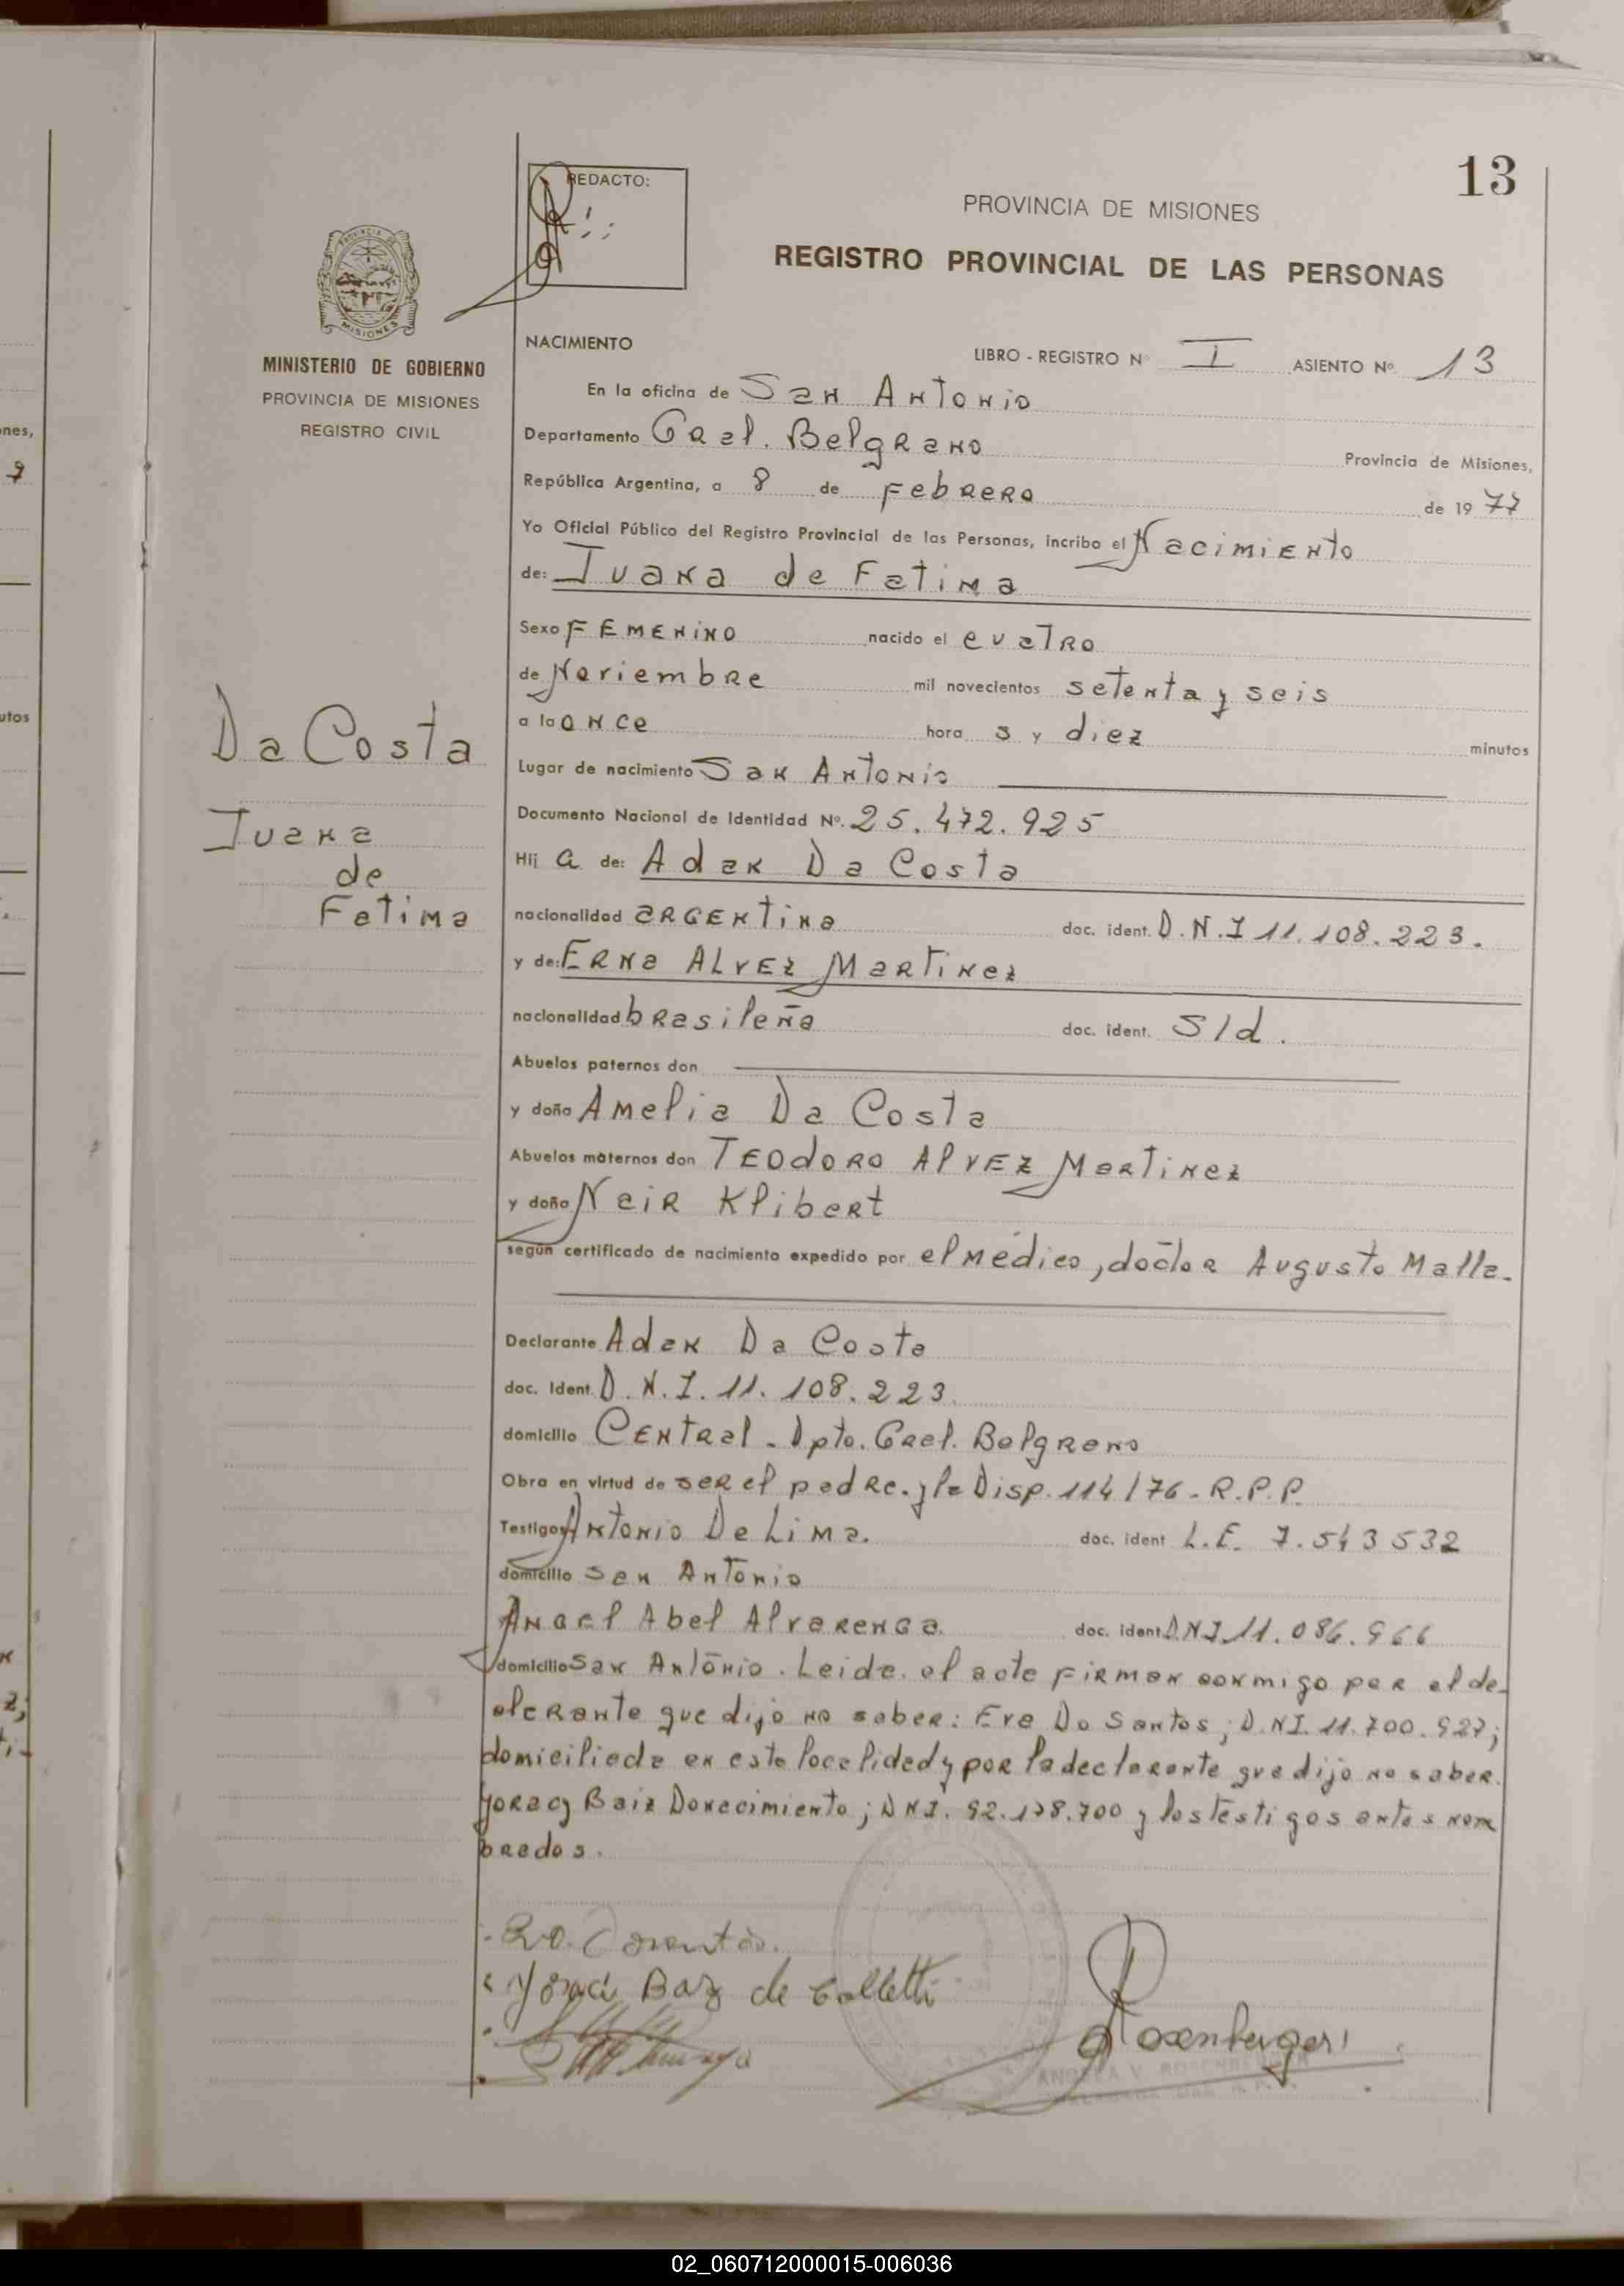 13
REDACTO:
PROVINCIA DE MISIONES
REGISTRO PROVINCIAL DE LAS PERSONAS
PROVINCIA DE
MISIONES
MINISTERIO DE GOBIERNO
PROVINCIA DE MISIONES
REGISTRO CIVIL
NACIMIENTO
LIBRO - REGISTRO Nº I ASIENTO Nº 13
En la oficina de San Antonio
Departamento Gral. Belgrano Provincia de Misiones,
República Argentina, a 8 de Febrero de 1977
Yo Oficial Público del Registro Provincial de las Personas, incribo el Nacimiento
de: Juana de Fatima
Sexo FEMENINO nacido el cuatro
de Noviembre mil novecientos setenta y seis
a la once hora s y diez minutos
Lugar de nacimiento San Antonio
Documento Nacional de Identidad Nº. 25.472.925
Hij a de: Adan Da Costa
nacionalidad argentina doc. ident. D.N.I 11.108.223.
y de: Erna Alvez Martinez
nacionalidad brasileña doc. ident. S/d.
Abuelos paternos don
y doña Amelia Da Costa
Abuelos maternos don Teodoro Alvez Martinez
y doña Neir Klibert
según certificado de nacimiento expedido por el médico, doctor Augusto Malla.
Declarante Adan Da Costa
doc. Ident. D.N.I. 11.108.223.
domicilio Central - Dpto. Gral. Belgrano
Obra en virtud de ser el padre. y la Disp. 114/76 - R.P.P.
Testigos Antonio De Lima. doc. ident L.E. 7.543532
domicilio San Antonio
Angel Abel Alvarenga. doc. ident. D.N.I 11.086.966
domicilio San António. Leida el acta firman conmigo por el de-
clarante que dijo no saber: Eva Do Santos; D.NI. 11.700.927;
domiciliada en esta localidad y por la declarante que dijo no saber.
Yoracy Baiz Donacimiento; DNI. 92.138.700 y los testigos antes nom
brados.
Yoraci Baz de Colletti
Rosenberger
Da Costa
Juana
de
Fatima
02_060712000015-006036